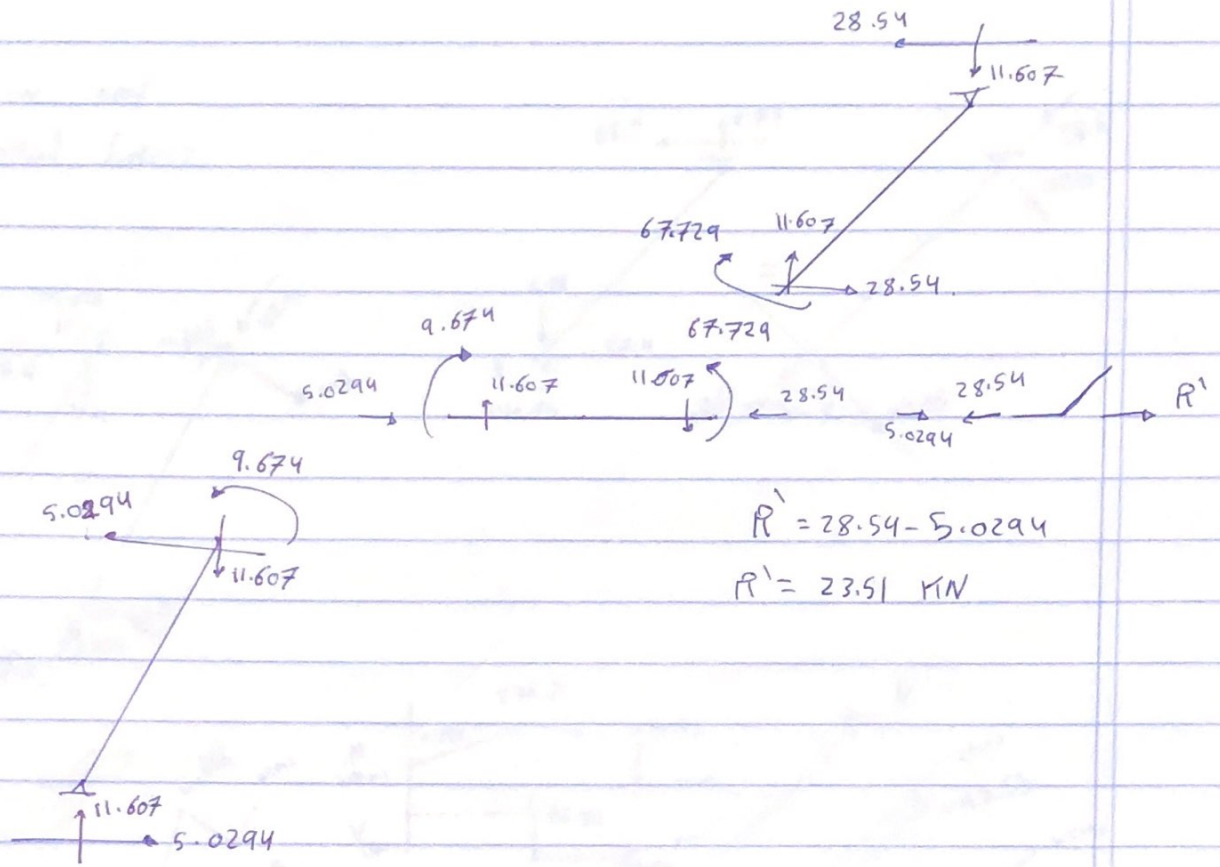 28.54
11.607
67.729
11.607
28.54.
9.674
67.729
5.0294
11.607
11.607
28.54
5.0294
28.54
R'
9.674
5.0294
11.607
R' = 28.54 - 5.0294
R' = 23.51 KN
11.607
5.0294